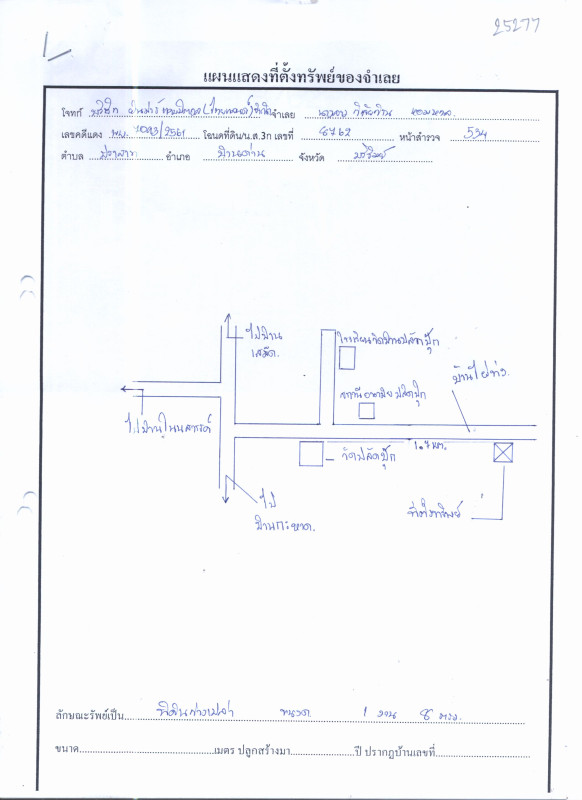 25277
แผนแสดงที่ตั้งทรัพย์ของจำเลย
โจทก์ บริษัท (ไทยแลนด์) จำกัด จำเลย
เลขคดีแดง ผบ. 7093/2561 โฉนดที่ดิน/น.ส.3ก เลขที่ 8762 หน้าสำรวจ 534
ตำบล ปราสาท อำเภอ บ้านด่าน จังหวัด บุรีรัมย์
ไปบ้าน
เสม็ด.
โรงเรียนวัดบ้านปลัดปุ๊ก
บ้านไผ่
สถานีอนามัย ปลัดปุ๊ก
ไปบ้านโนนสวรรค์
วัดปลัดปุ๊ก
1.7 กม.
ที่ตั้งทรัพย์
ไป
บ้านกะหาด.
ลักษณะรัพย์เป็น ที่ดินว่างเปล่า 1 งาน 8 ตรว.
ขนาด เมตร ปลูกสร้างมา ปี ปรากฏบ้านเลขที่